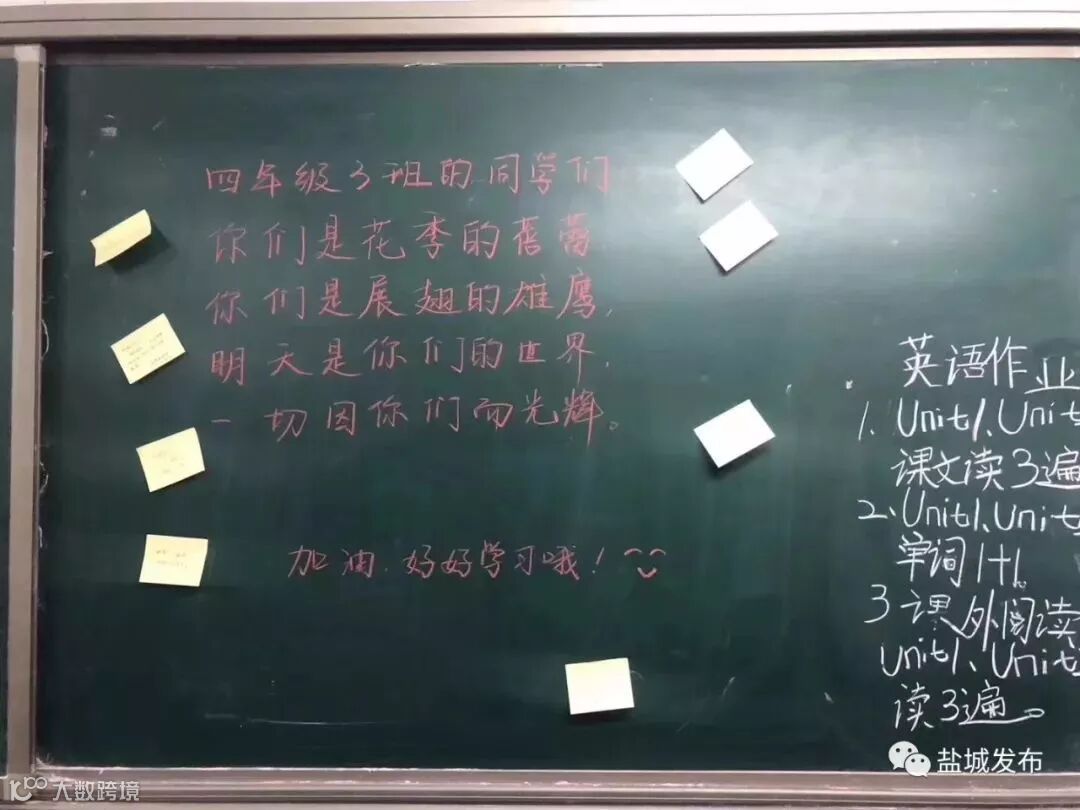 四年级3班的同学们
你们是花季的蓓蕾
你们是展翅的雄鹰,
明天是你们的世界,
一切因你们而光辉。
加油,好好学习哦!
英语作业
1、Unit1、Unit
课文读3遍
2、Unit1、Unit
单词1+1。
3 课外阅读
Unit1、Unit
读3遍。
盐城发布
大数跨境